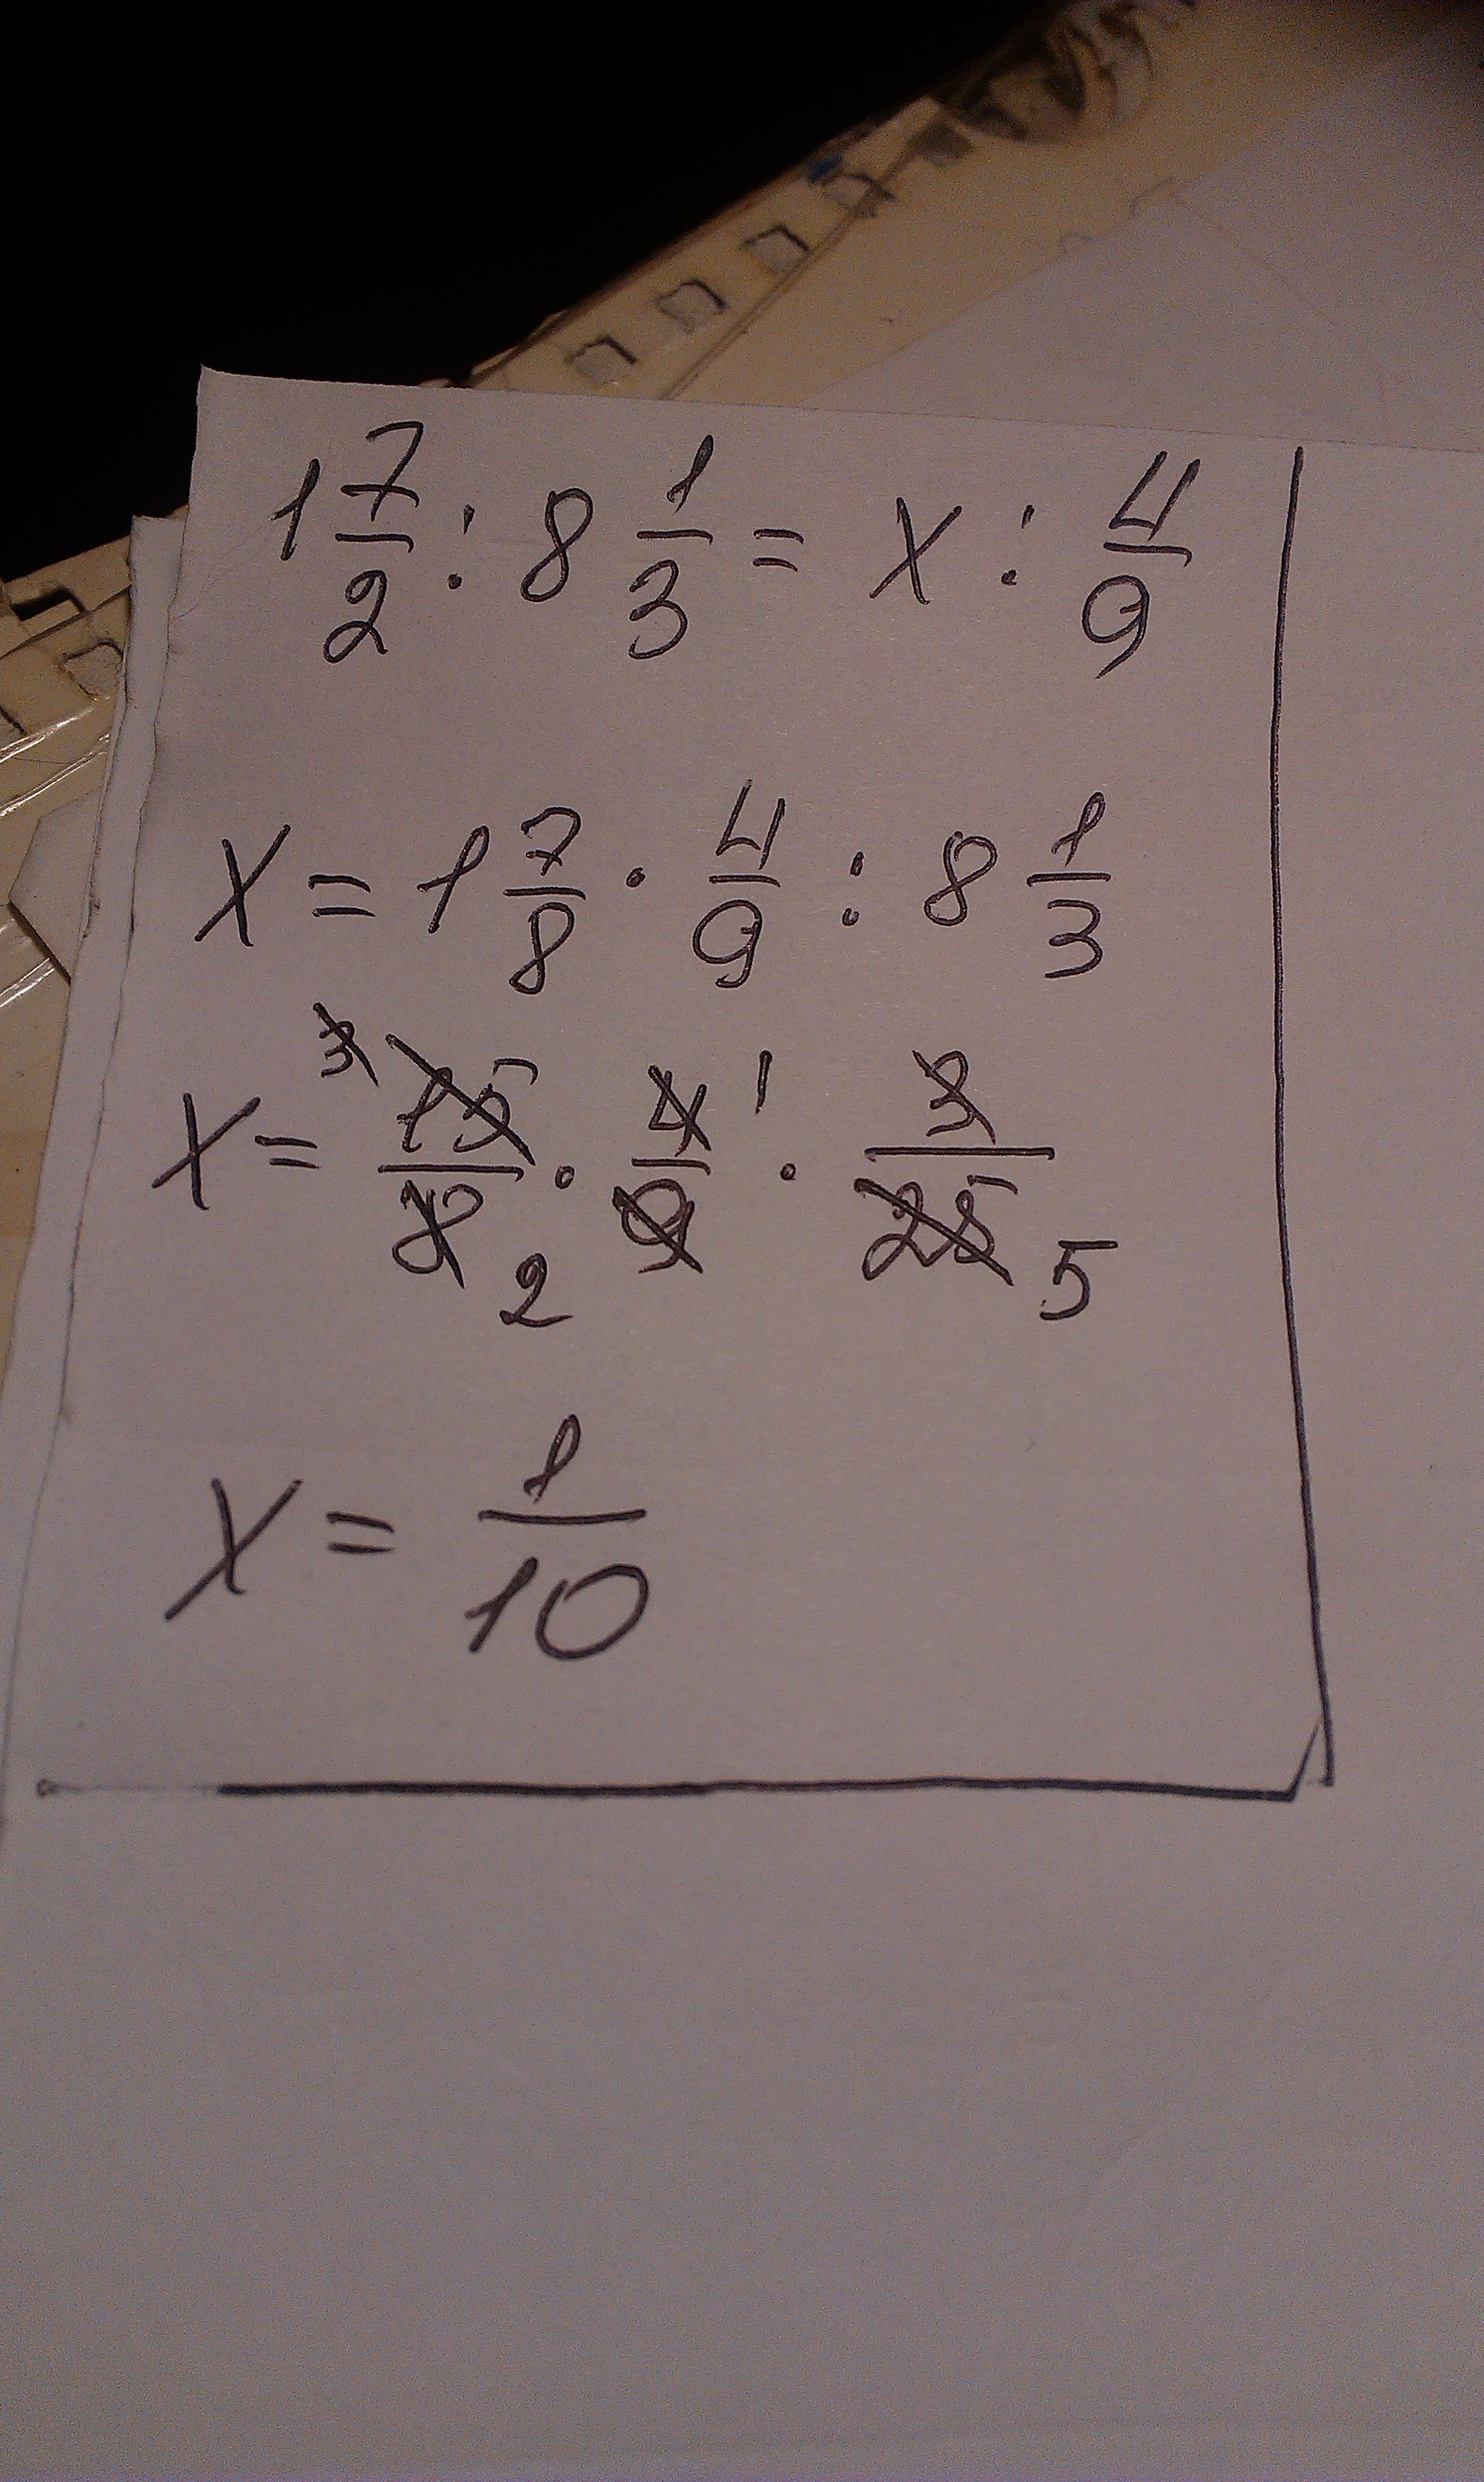 1 7/2 : 8 1/3 = x : 4/9
x = 1 7/8 · 4/9 : 8 1/3
x = 3 15/8 2 · 4/9 1 · 3/25 5
x = 1/10